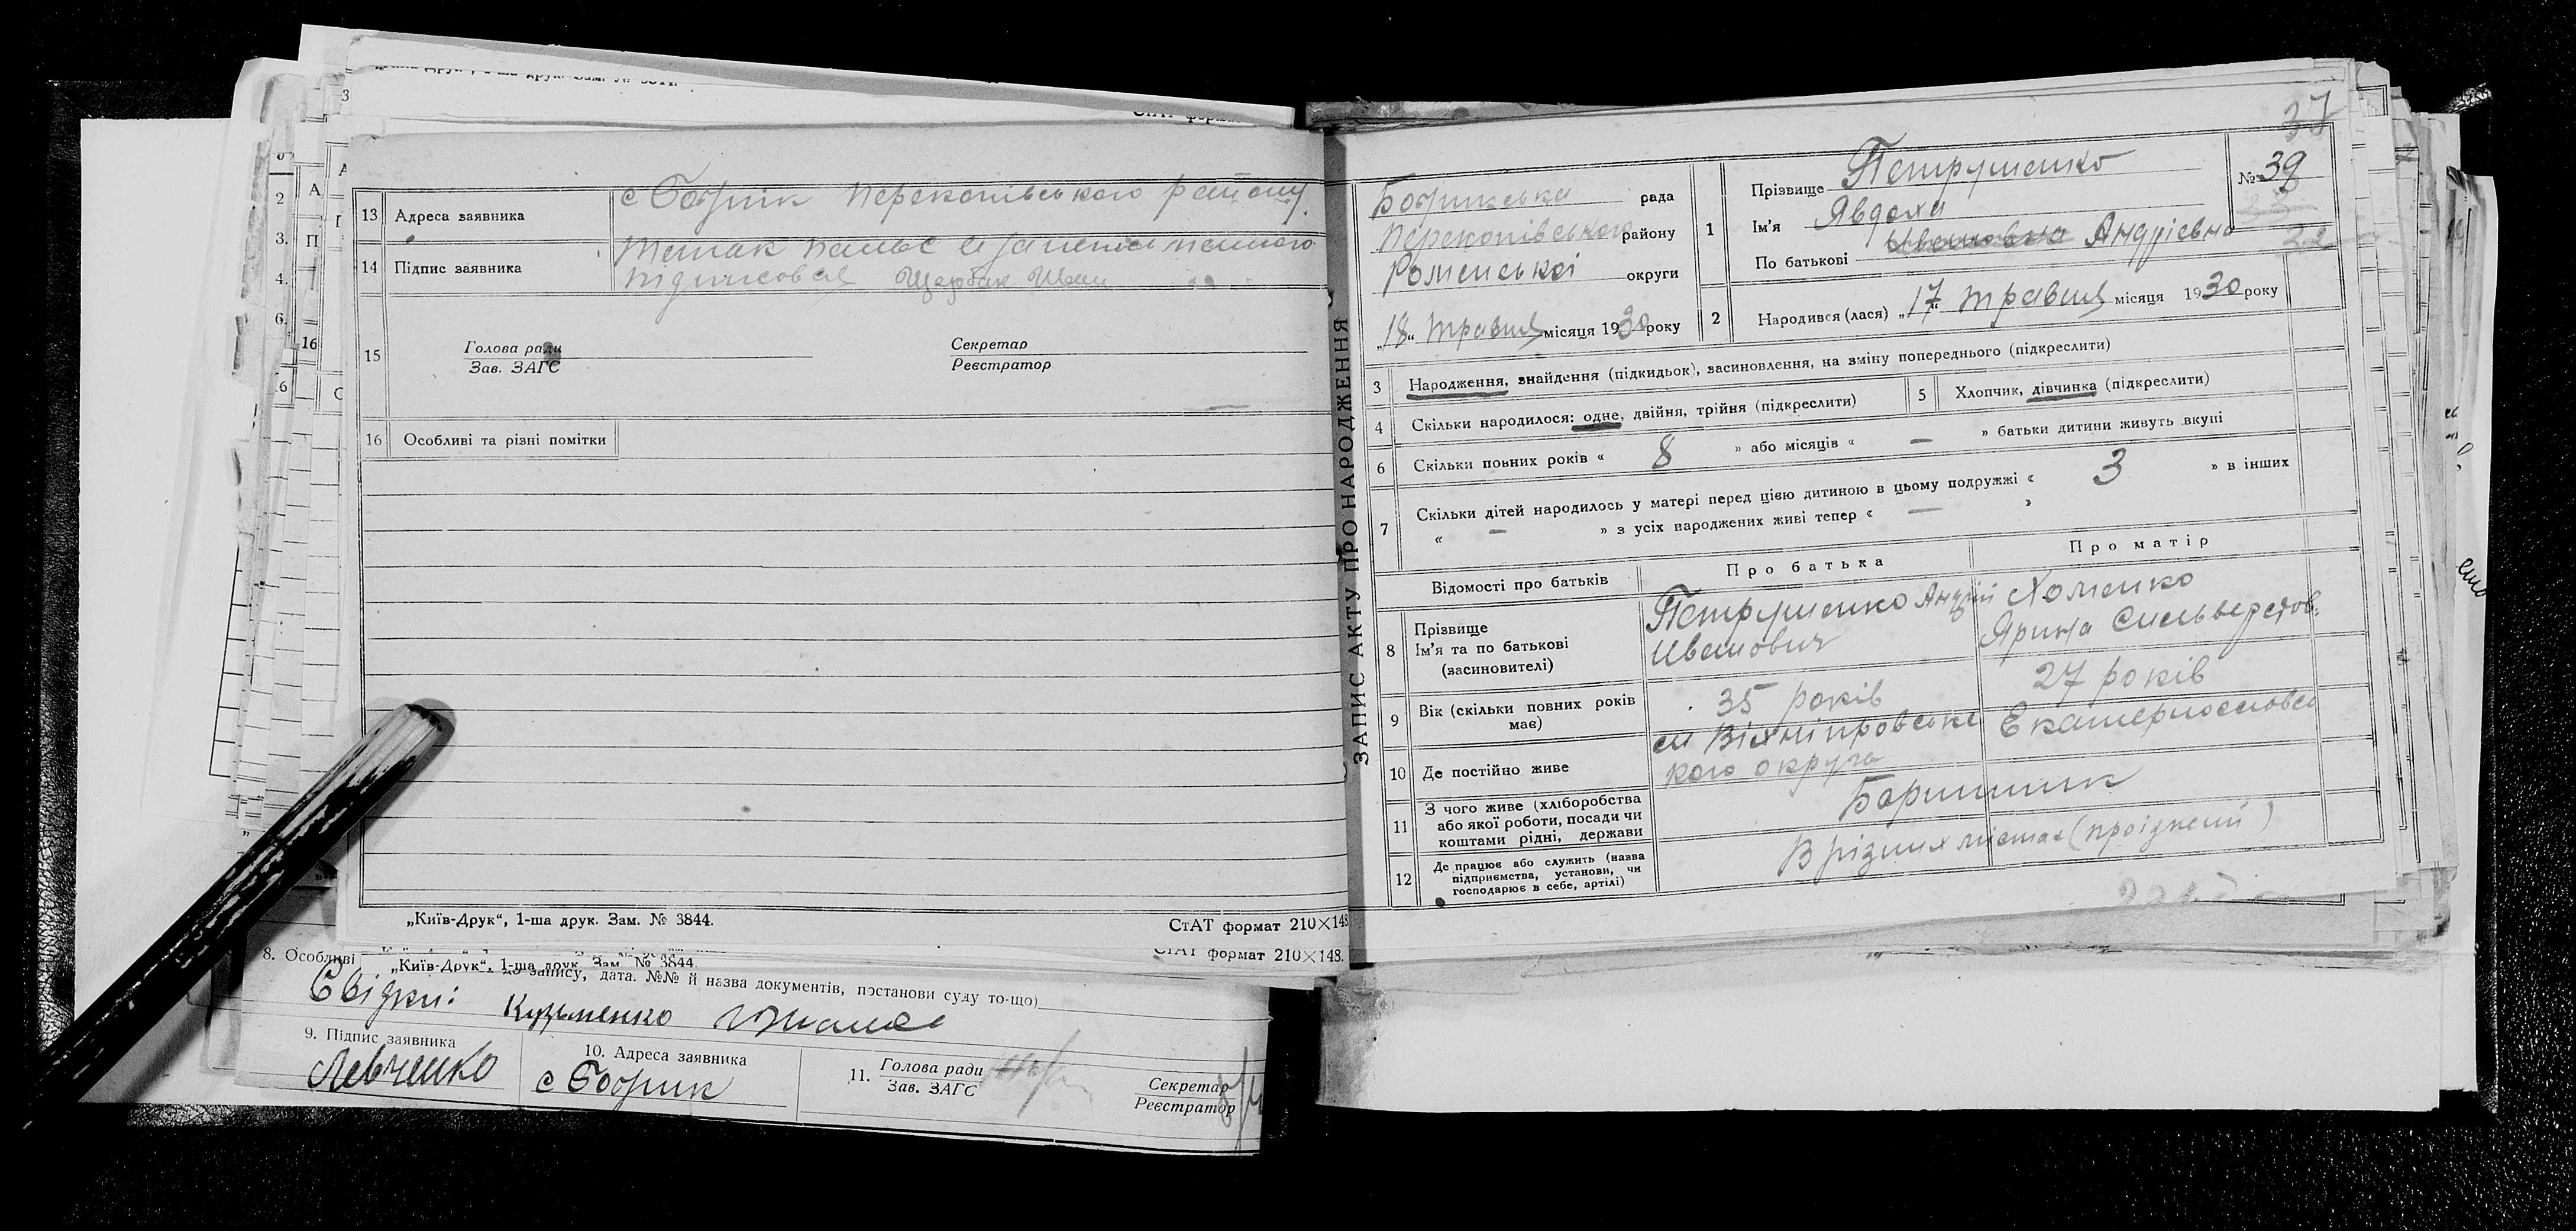 13 Адреса заявника с Бобрик Перекопівського району.
14 Підпис заявника
підписовся Щербак Иван
15 Голова ради Секретар
Зав. ЗАГС Реєстратор
16 Особливі та різні помітки
„Київ-Друк“, 1-ша друк. Зам. № 3844.
СтАТ формат 210×148
„Київ-Друк“, 1-ша друк. Зам. № 3844.
формат 210×148.
8. Особливі
до запису, дата. №№ й назва документів, постанови суду то-що)
Свідки: Кузьменко
9. Підпис заявника
Левченко
10. Адреса заявника
с Бобрик
11. Голова ради
Зав. ЗАГС
Секретар
Реєстратор
ЗАПИС АКТУ ПРО НАРОДЖЕННЯ
37
Бобрикська рада
Перекопівського району
Роменської округи
„18“ травня місяця 1930 року
1 Прізвище Петрушенко
Ім'я Явдоха
По батькові Ивановна Андріевна
№ 39
22
2 Народився (лася) „17“ травня місяця 1930 року
3 Народження, знайдення (підкидьок), засиновлення, на зміну попереднього (підкреслити)
4 Скільки народилося: одне, двійня, трійня (підкреслити)
5 Хлопчик, дівчинка (підкреслити)
6 Скільки повних років « 8 » або місяців « — » батьки дитини живуть вкупі
7 Скільки дітей народилось у матері перед цією дитиною в цьому подружжі « 3 » в інших
« — » з усіх народжених живі тепер « — »
Відомості про батьків Про батька Про матір
8 Прізвище
Ім'я та по батькові
(засиновителі)
Петрушенко Андрій
Иванович
Хоменко
Ярина Сильверстов.
9 Вік (скільки повних років має)
35 років
27 років
10 Де постійно живе
кого округа
11 З чого живе (хліборобства
або якої роботи, посади чи
коштами рідні, держави
Баришник
12 Де працює або служить (назва
підприємства, установи, чи
господарює в себе, артілі)
В різних містах (проізжений)